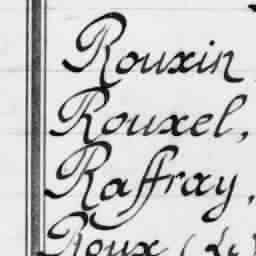 Rouxin
Rouxel,
Raffray,
Roux (Le)